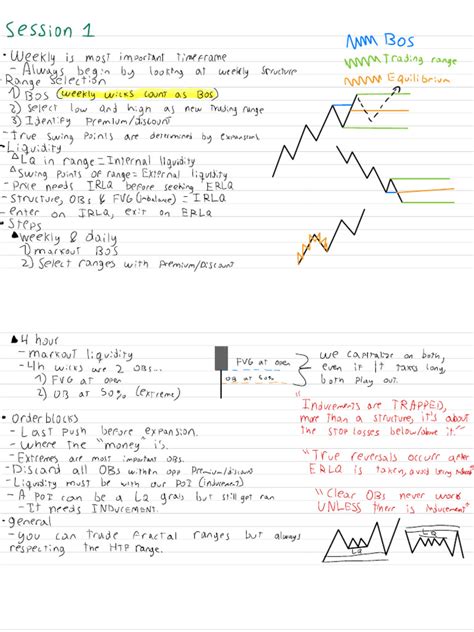 Session 1
BOS
Trading range
Equilibrium
• Weekly is most important timeframe
- Always begin by looking at weekly structure
- Range selection
1) BOS (weekly wicks count as BOS)
2) select low and high as new trading range
3) Identify Premium/discount
- True Swing Points are determined by expansions
- Liquidity
△ LQ in range = Internal liquidity
△ Swing Points of range = External liquidity
- Price needs IRLQ before seeking ERLQ
- Structure, OBs & FVG (imbalance) = IRLQ
- enter on IRLQ, exit on ERLQ
• Steps
▲ weekly & daily
1) markout BOS
2) Select ranges with Premium/Discount
▲ 4 hour
- markout liquidity
- 4h wicks are 2 OBs...
1) FVG at open
2) OB at 50% (extreme)
FVG at open
OB at 50%
we capitalize on both,
even if it takes long,
both play out.
"Inducements are TRAPPED,
more than a structure, it's about
the STOP losses below/above it."
• Orderblocks
- Last push before expansion.
- Where the "money" is.
- Extremes are most important OBs.
- Discard all OBs within opp Premium/discount
- Liquidity must be with our POI (inducement)
- A POI can be a LQ grab but still get ran
- It needs INDUCEMENT.
"True reversals occur after
ERLQ is taken, avoid being induced"
"Clear OBs never work
UNLESS there is inducement"
• general
- you can trade fractal ranges but always
respecting the HTF range.
LQ
LQ